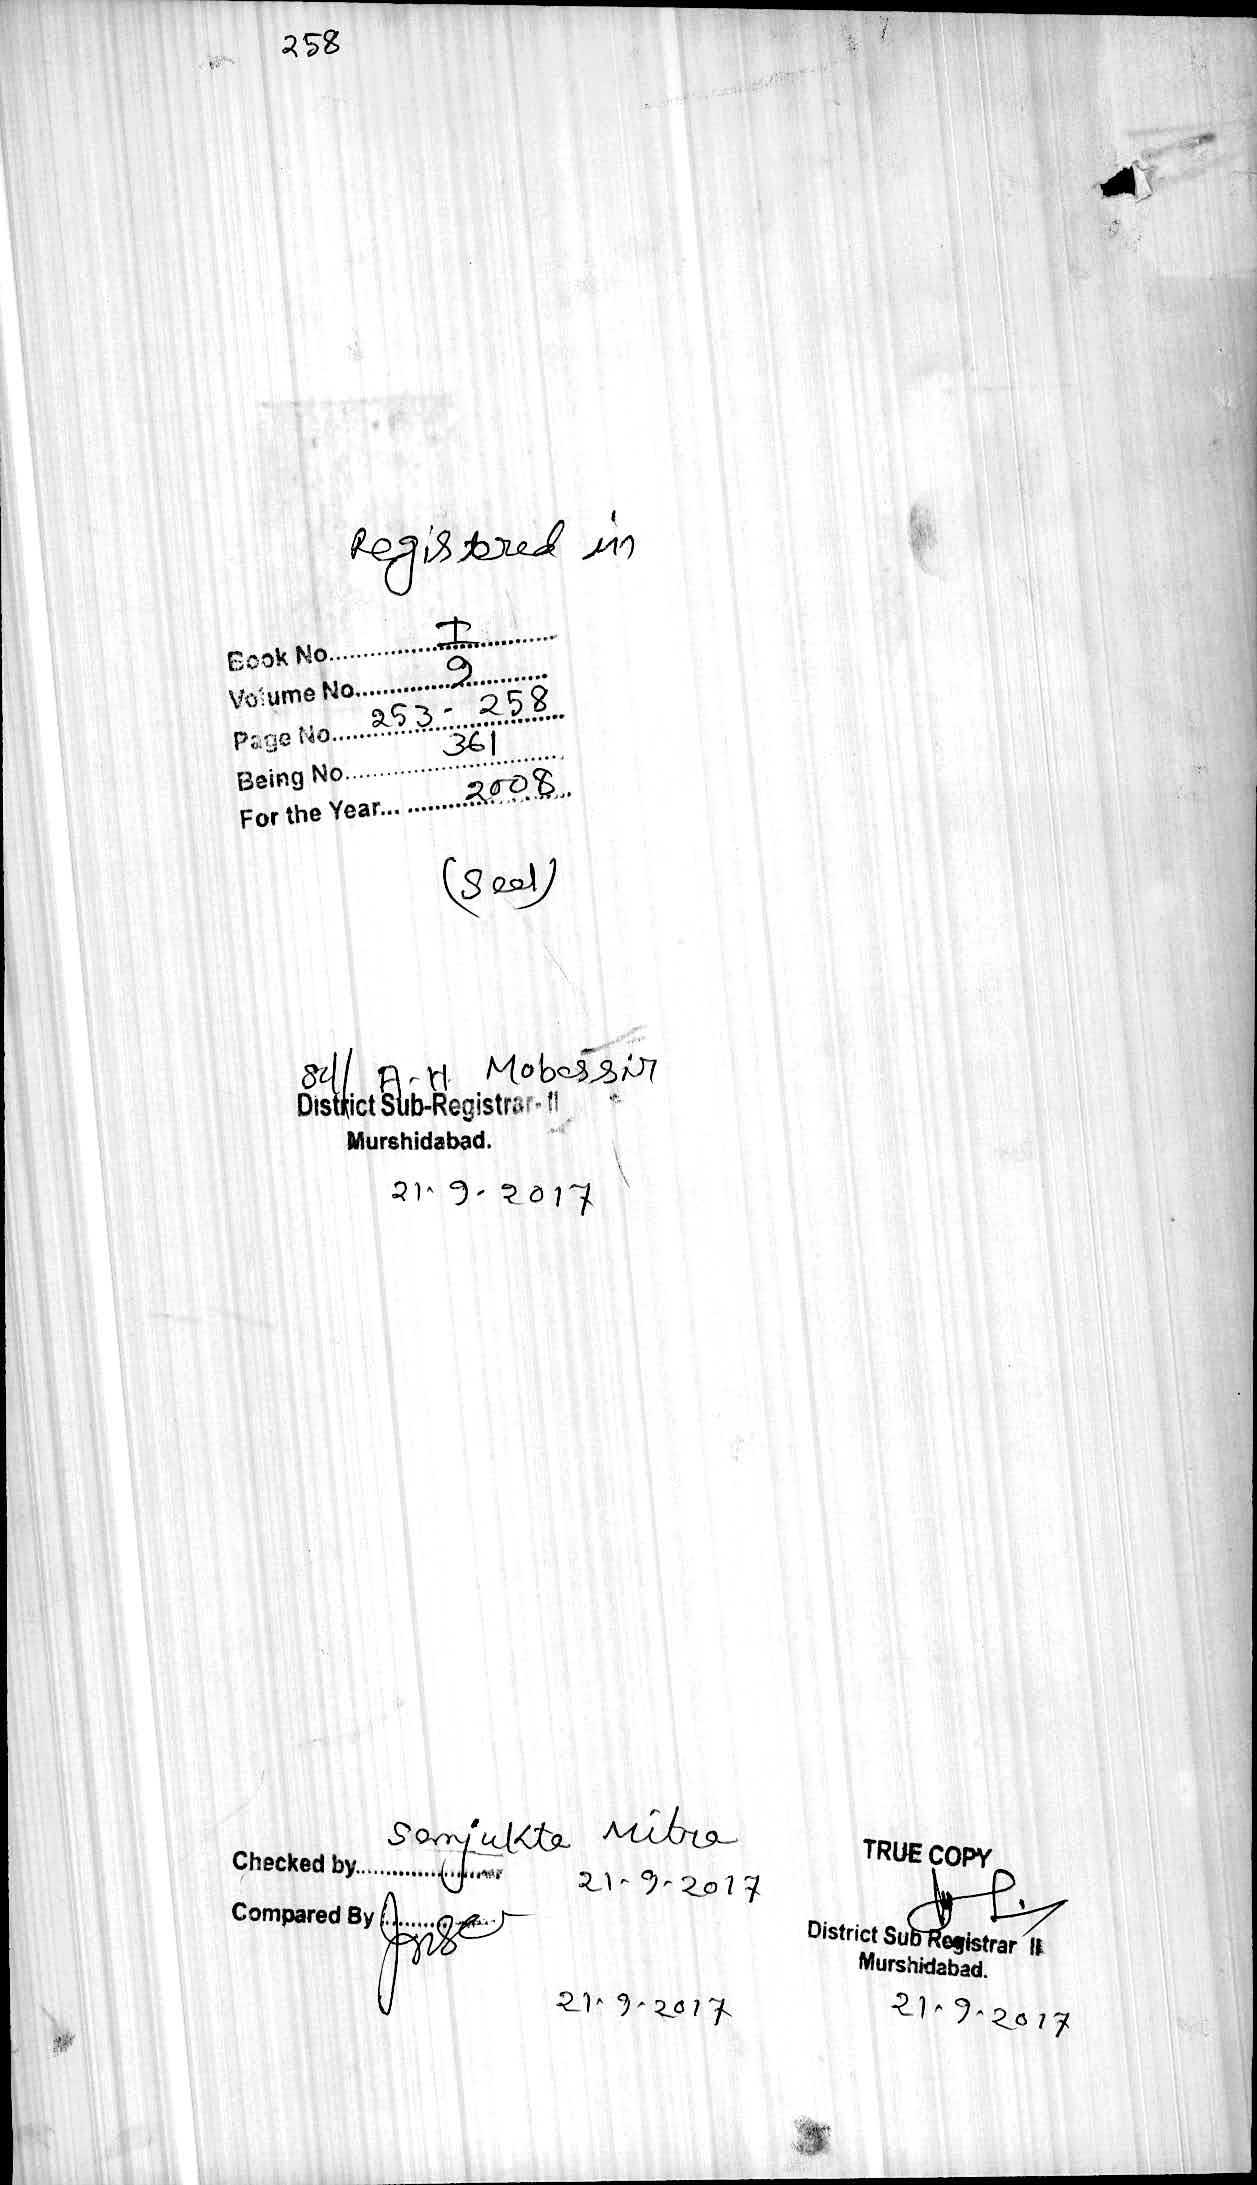 258
Registered in
Book No. I
Volume No. 9
Page No. 253 - 258
Being No. 361
For the Year... 2008
(Seal)
Sd/ A-H. Mobassir
District Sub-Registrar-II
Murshidabad.
21-9-2017
Sanjukta Mitra
Checked by 21-9-2017
Compared By
21-9-2017
TRUE COPY
District Sub Registrar II
Murshidabad.
21-9-2017